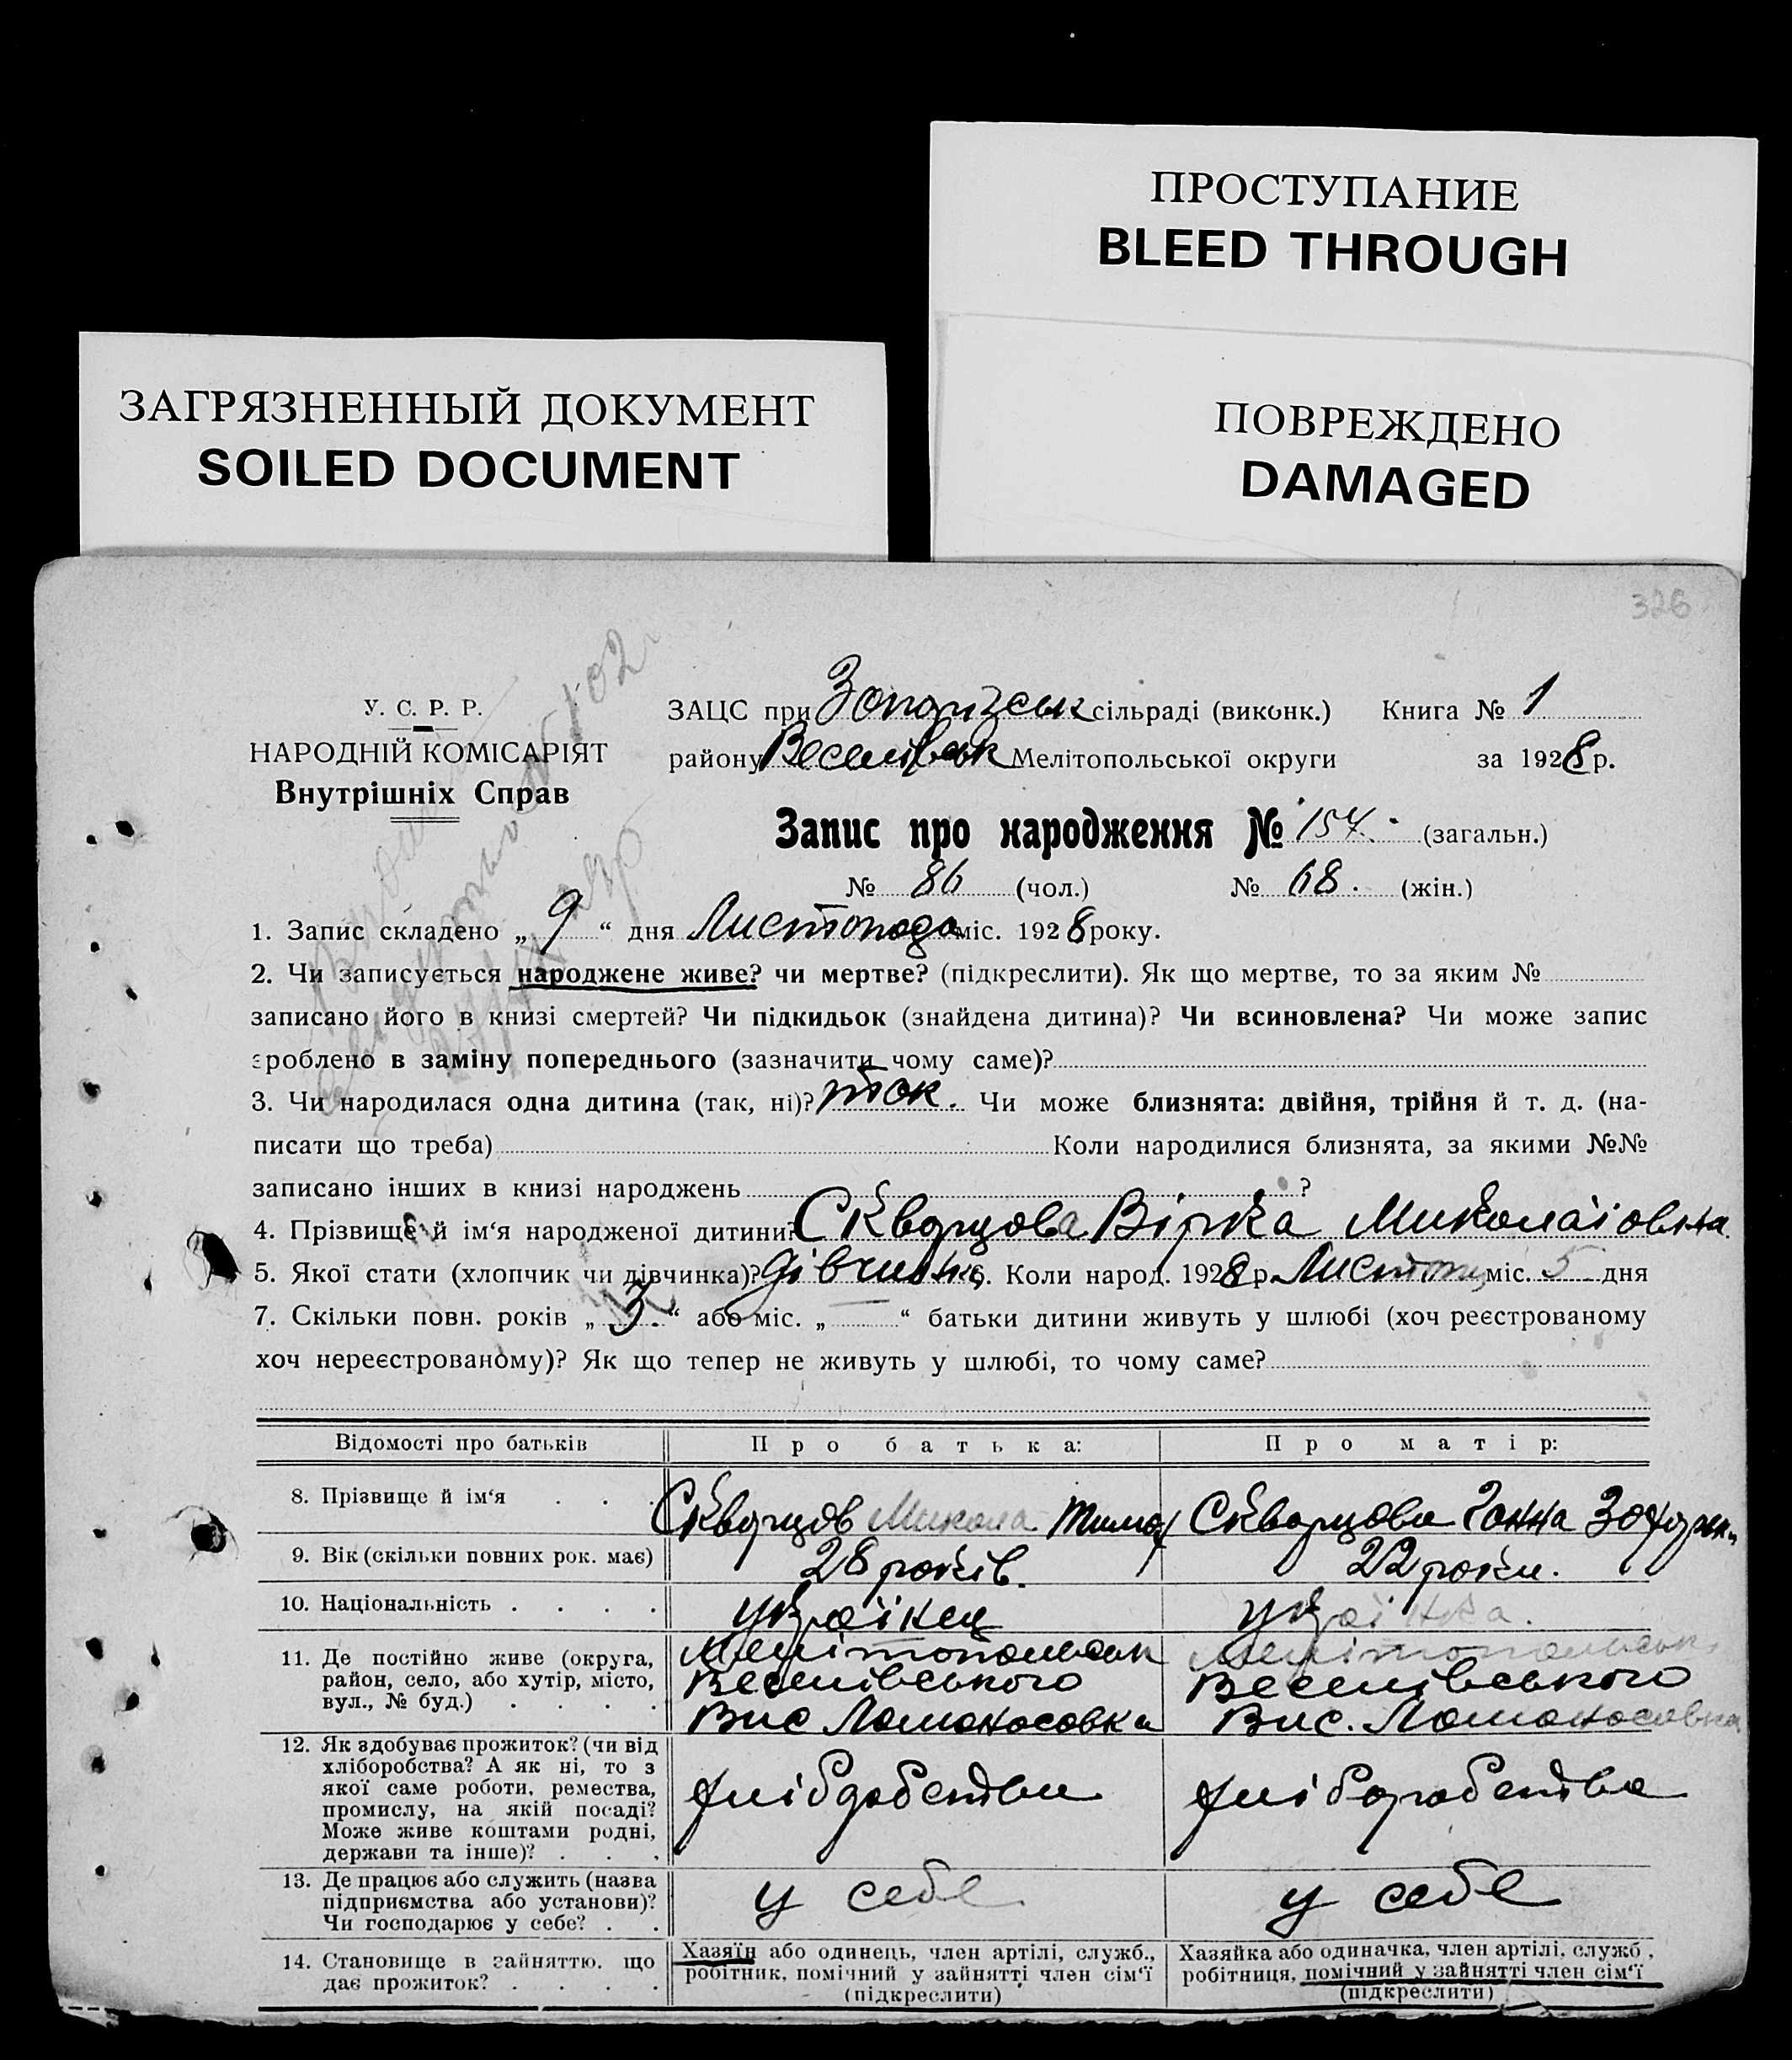 ПРОСТУПАНИЕ
BLEED THROUGH
ЗАГРЯЗНЕННЫЙ ДОКУМЕНТ
SOILED DOCUMENT
ПОВРЕЖДЕНО
DAMAGED
326
У. С. Р. Р.
НАРОДНІЙ КОМІСАРІЯТ
Внутрішніх Справ
ЗАЦС при сільраді (виконк.) Книга № 1
району Веселівськ Мелітопольської округи за 1928 р.
Запис про народження № 154. (загальн.)
№ 86 (чол.) № 68. (жін.)
1. Запис складено „ 9 “ дня Листопада міс. 1928 року.
2. Чи записується народжене живе? чи мертве? (підкреслити). Як що мертве, то за яким №
записано його в книзі смертей? Чи підкидьок (знайдена дитина)? Чи всиновлена? Чи може запис
зроблено в заміну попереднього (зазначити чому саме)?
3. Чи народилася одна дитина (так, ні)? так. Чи може близнята: двійня, трійня й т. д. (на-
писати що треба) Коли народилися близнята, за якими №№
записано інших в книзі народжень ?
4. Прізвище й ім‘я народженої дитини? Скворцова Вірка Миколаіовна
5. Якої стати (хлопчик чи дівчинка)? дівчинка 6. Коли народ. 1928 р. Листоп міс. 5 дня
7. Скільки повн. років „ 3. “ або міс. „ — “ батьки дитини живуть у шлюбі (хоч реєстрованому
хоч нереєстрованому)? Як що тепер не живуть у шлюбі, то чому саме?
Відомості про батьків Про батька: Про матір:
8. Прізвище й ім‘я . . . Скворцов Микола Тимоф Скворцова Ганна
9. Вік (скільки повних рок. має) 28 років. 22 роки.
10. Національність . . . . україкец украінка.
11. Де постійно живе (округа, район, село, або хутір, місто, вул., № буд.) . . . .
Мелітопольськ Мелітопольськ
Веселівського Веселівського
Вис Ломоносовка Вис. Ломоносовка
12. Як здобуває прожиток? (чи від
хліборобства? А як ні, то з
якої саме роботи, ремества,
промислу, на якій посаді?
Може живе коштами родні,
держави та інше)? . . .
хліборобство хлібороство
13. Де працює або служить (назва
підприємства або установи)?
Чи господарює у себе? . .
у себе у себе
14. Становище в зайняттю, що
дає прожиток? . . . .
Хазяїн або одинець, член артілі, служб.,
робітник, помічний у зайнятті член сім‘ї
(підкреслити)
Хазяйка або одиначка, член артілі, служб.,
робітниця, помічний у зайнятті член сім‘ї
(підкреслити)